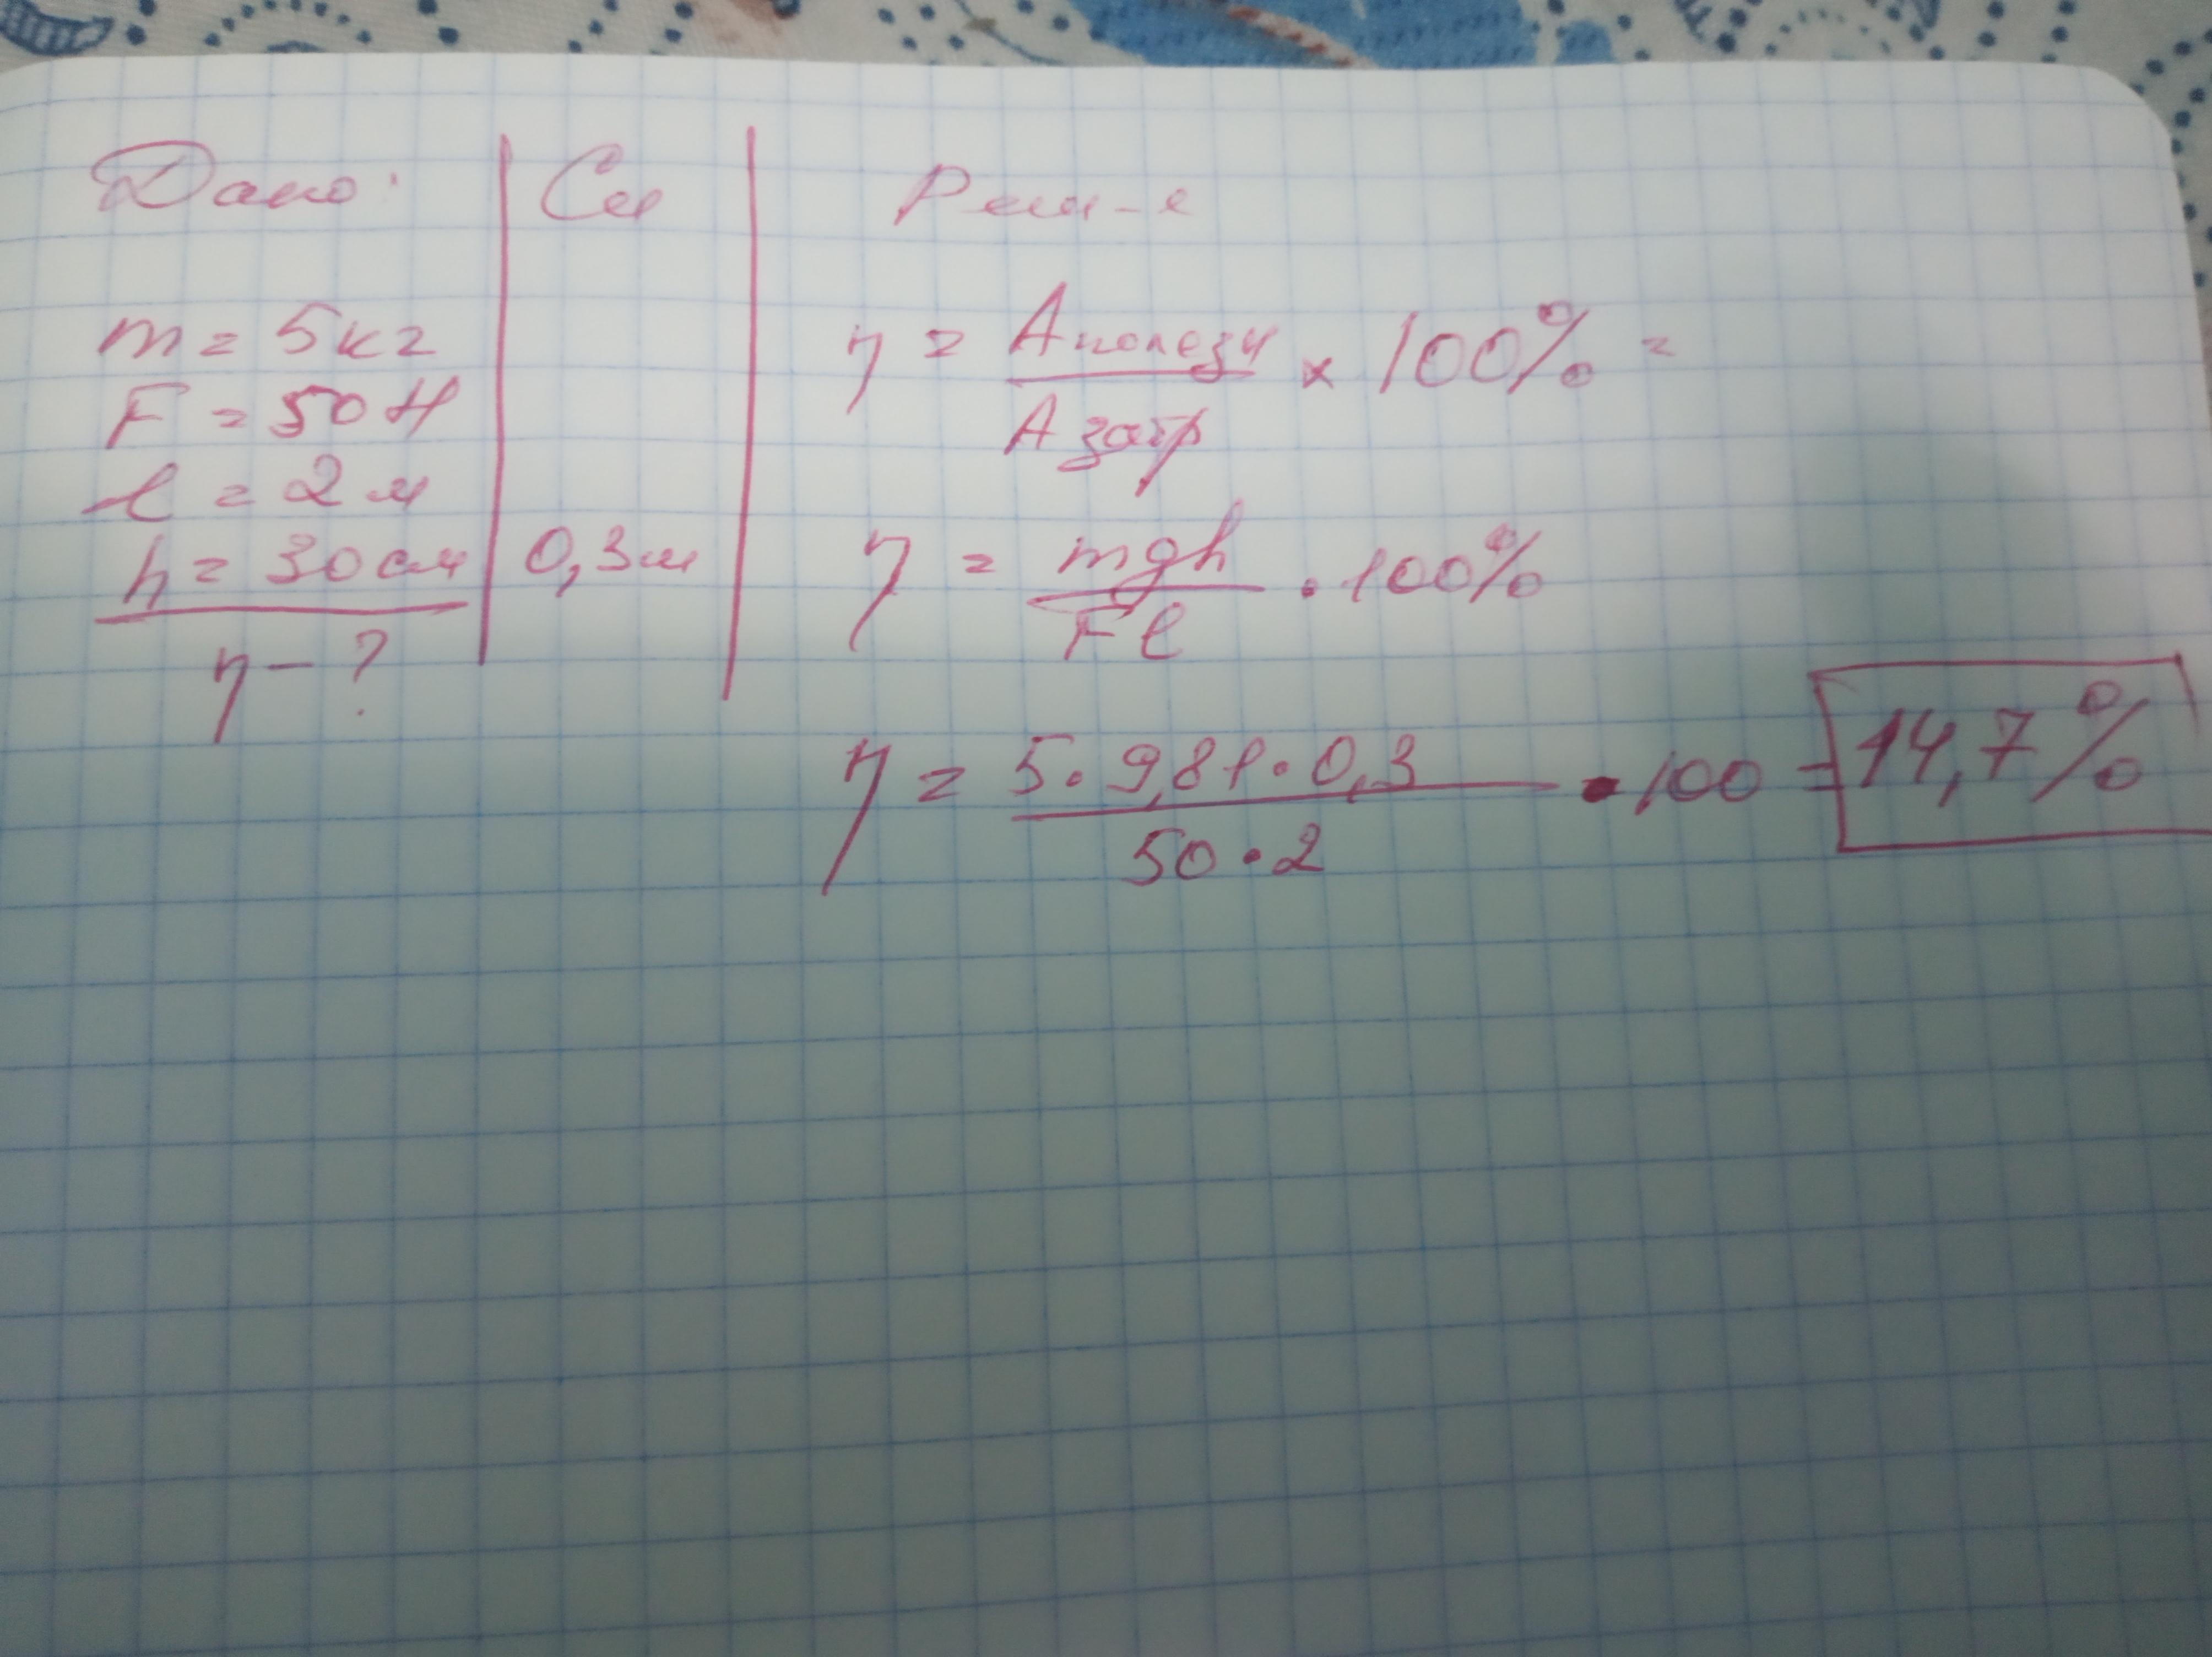 Дано:
Си
Реш-е
m = 5кг
F = 50 Н
l = 2 м
h = 30 см
0,3м
η - ?
η = Aполезн / Aзатр × 100% =
η = mgh / Fl · 100%
η = 5 · 9,81 · 0,3 / 50 · 2 · 100 = 14,7%